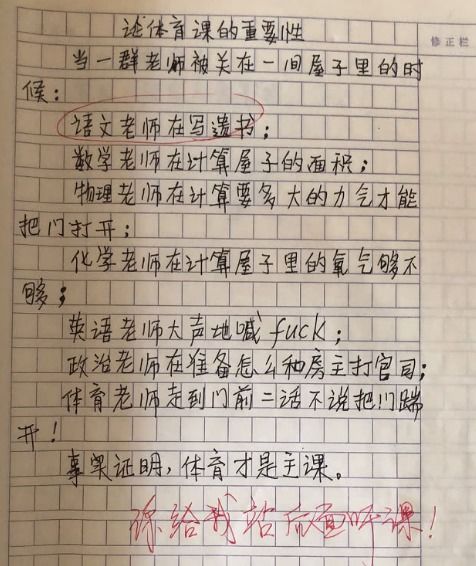 论体育课的重要性
修正栏
当一群老师被关在一间屋子里的时
候:
语文老师在写遗书;
数学老师在计算屋子的面积;
物理老师在计算要多大的力气才能
把门打开;
化学老师在计算屋子里的氧气够不
够;
英语老师大声地喊fuck;
政治老师在准备怎么和房主打官司;
体育老师走到门前二话不说把门踹
开!
事实证明,体育才是主课。
你给我站后面听课!